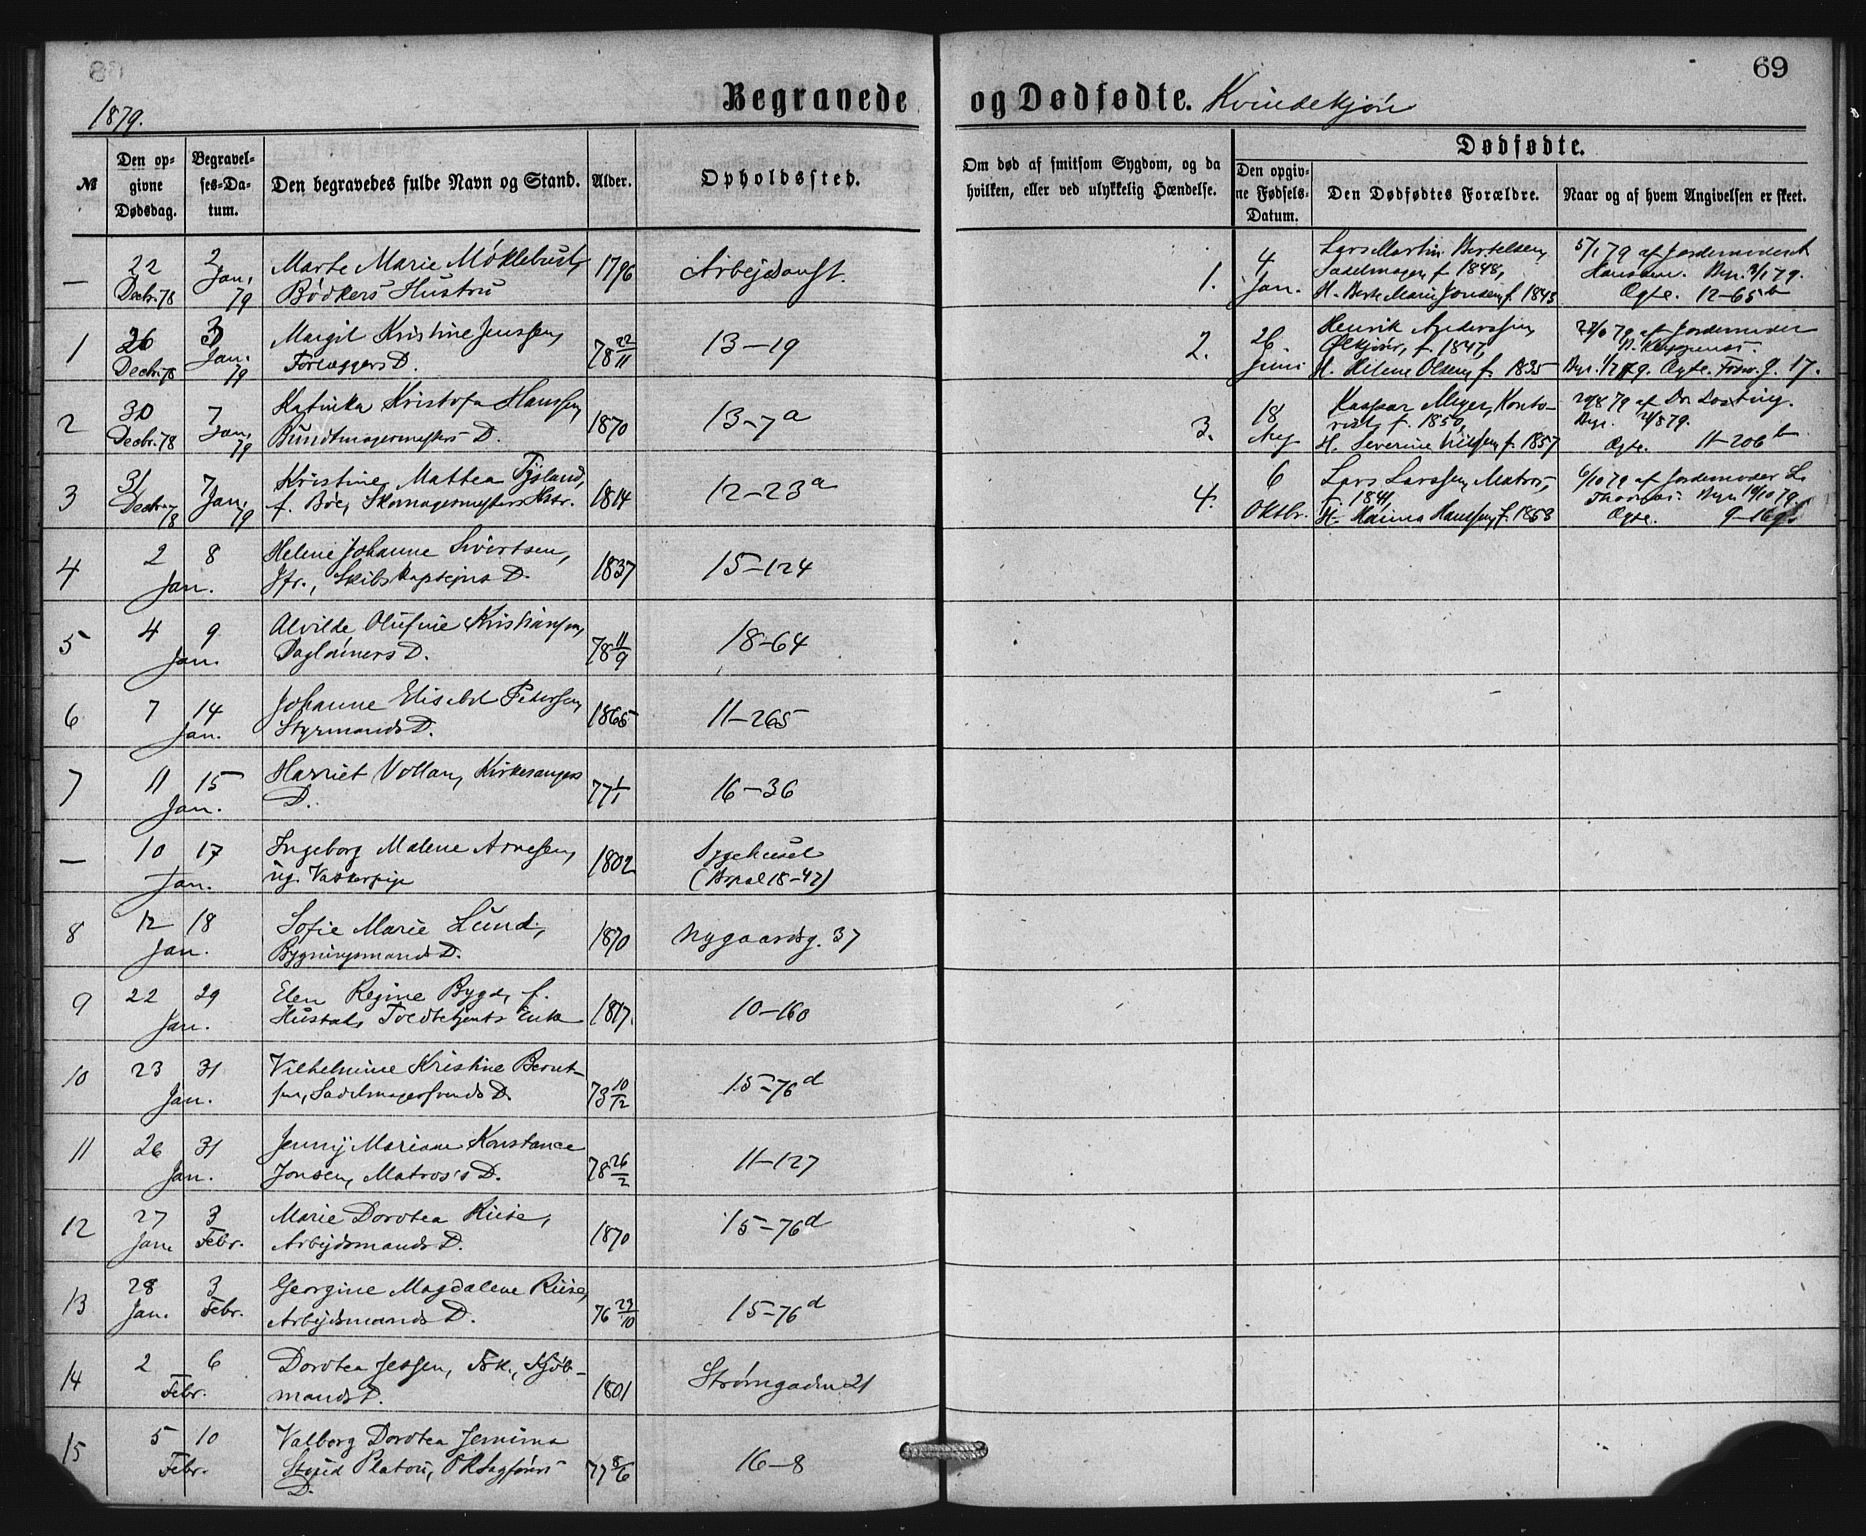 69
1879.
Begravede og Dødfødte. Kvindekjøn
№
Den opgivne Dødsdag.
Begravelses-Datum.
Den begravedes fulde Navn og Stand.
Alder.
Opholdssted.
Om død af smitsom Sygdom, og da hvilken, eller ved ulykkelig Hændelse.
Dødfødte.
Den opgivne Fødsels-Datum.
Den Dødfødtes Forældre.
Naar og af hvem Angivelsen er skeet.
— 22 Decbr. 78 2 Jan. 79 Marte Marie Møklebust, 1796 Arbejdsanst.
Bødkers Hustru
1 26 Decbr. 78 3 Jan. 79 Margit Kristine Jenssen, 78 22/11 13–19
Forlæggers D.
2 30 Decbr. 78 7 Jan. 79 Katinka Kristofa Hanssen, 1870 13–7a
Bundtmagermesters D.
3 31 Decbr. 78 7 Jan. 79 Kristine Mattea Tysland, 1814 12–23a
f. Böe, Skomagermesters Hstr.
4 2 8 Jan. Helene Johanne Sivertsen, 1837 15–124
Jfr., Skibskaptejns D.
5 4 9 Jan. Alvilde Olufine Kristiansen, 78 11/9 18–64
Daglönners D.
6 7 14 Jan. Johanne Elisabet Petersen, 1865 11–265
Styrmands D.
7 11 15 Jan. Harriet Vollan, Kirkesangers 77 1/1 16–36
D.
— 10 17 Jan. Ingeborg Malene Arnesen, 1802 Sygehuset
ug. Vaskerpige (Bopæl 18–47)
8 12 18 Jan. Sofie Marie Lund, 1870 Nygaardsg. 37
Bygningsmands D.
9 22 29 Jan. Elen Regine Bygd, f. 1817. 10–160
Hustad, Toldbetjents Enke
10 23 31 Jan. Vilhelmine Kristine Bernt- 73 10/12 15–76d
sen, Sadelmagersvends D.
11 26 31 Jan. Jenny Mariane Konstance 78 26/2 11–127
Jonsen, Matros's D.
12 27 Jan. 3 Febr. Marie Dorotea Riise, 1870 15–76d
Arbejdsmands D.
13 28 Jan. 3 Febr. Georgine Magdalene Riise, 76 29/10 15–76d
Arbejdsmands D.
14 2 6 Febr. Dorotea Jessen, Frk., Kjöb- 1801 Strømgaden 21
mands D.
15 5 10 Febr. Valborg Dorotea Jemima 77 8/6 16–8
Stoud Platou, O.R.Sagförers
D.
1. 4 Jan. Lars Martin Bertelsen, 5/1 79 af Jordemoder
Sadelmager f. 1848, Hanssen. Begr. 9/1 79.
H. Berte Marie Jonsen f. 1845 Ægte. 12–65b
2. 26 Juni Henrik Anderssen, af Jordemoder
f. 1847,
H. Helene Olsen, f. 1835 Begr. 1/7 79. Ægte. 17.
3. 18 Aug. Kaspar Meyer, Konto- 20/8 79 af Dr.
rist, f. 1850, Begr. 21/8 79.
H. Severine Nilssen, f. 1857 Ægte. 11–206b
4. 6 Oktbr. Lars Larssen, Matros, 6/10 79 af Jordemoder
f. 1841, Begr. 10/10 79.
H. Hanna Hanssen, f. 1853 Ægte.